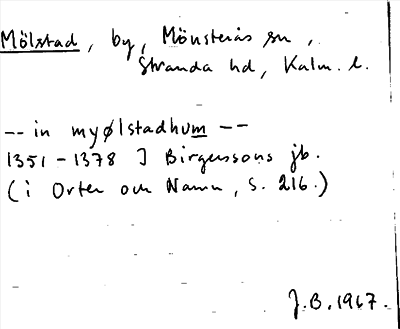 Mölstad, by, Mönsterås sn,
Stranda hd, Kalm. l.
-- in myølstadhum --
1351-1378 J Birgerssons jb.
(i Orter och Namn, s. 216.)
J.B. 1967.